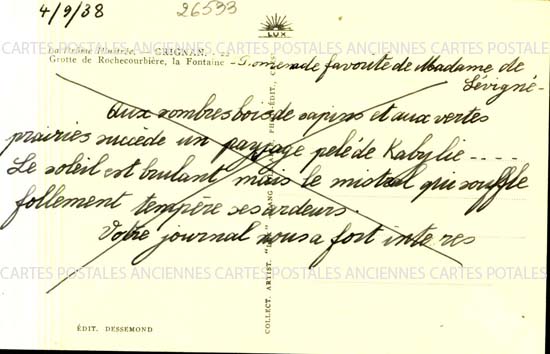 4/9/38
26533
LUX
La Drôme Illustrée. — GRIGNAN. -
Grotte de Rochecourbière, la Fontaine - Promenade favorite de Madame de
Sévigné -
CARTES POSTALES ANCIENNES CARTES POSTALES ANCIENNES CARTES POSTALES
Aux sombres bois de sapins et aux vertes
prairies succède un paysage pelé de Kabylie ----
Le soleil est brulant mais le mistral qui souffle
follement tempère ses ardeurs.
Votre journal nous a fort interes
CARTES POSTALES ANCIENNES CARTES POSTALES ANCIENNES CARTES POSTALES
ÉDIT. DESSEMOND
COLLECT. ARTIST. "LUX"